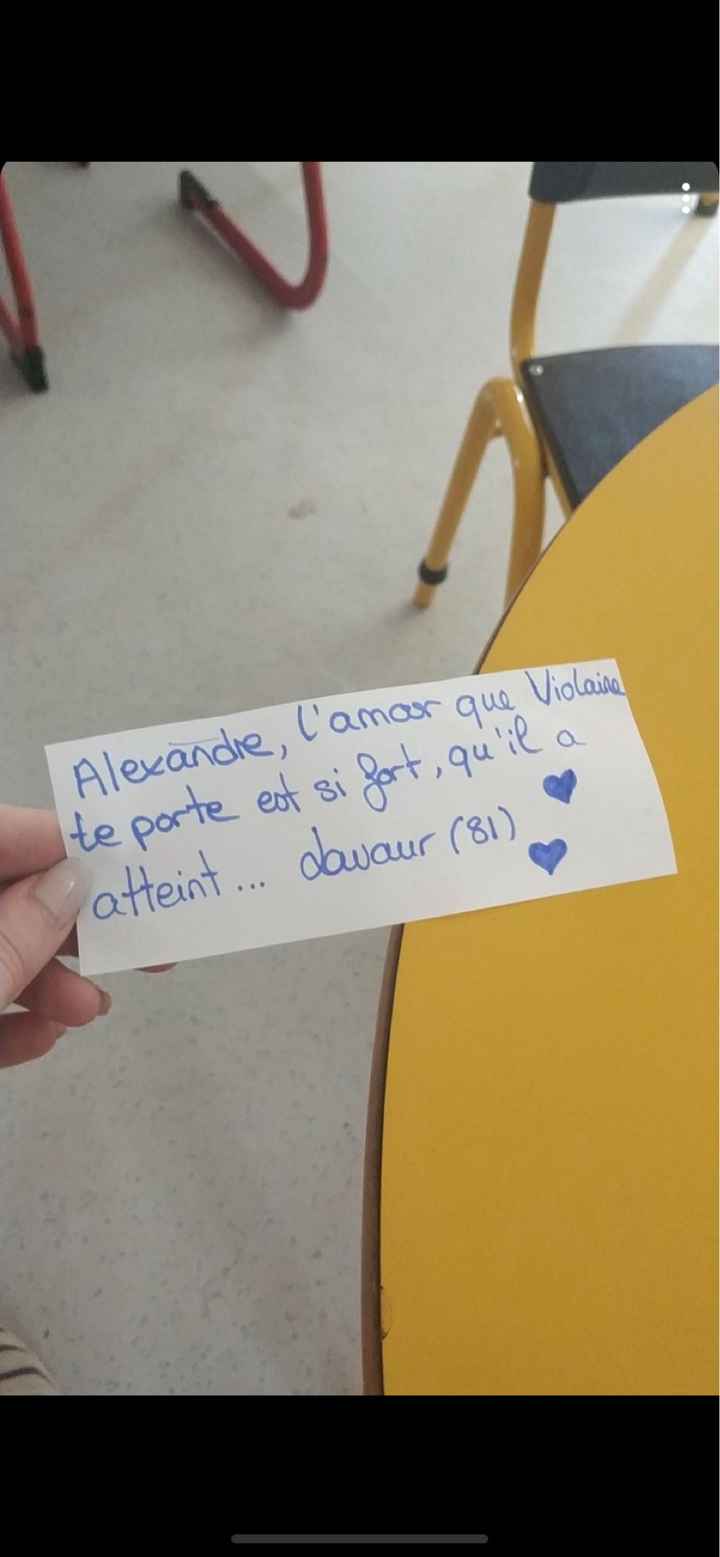 Alexandre, l'amour que Violaine
te porte est si fort, qu'il a
atteint... Lavaur (81)